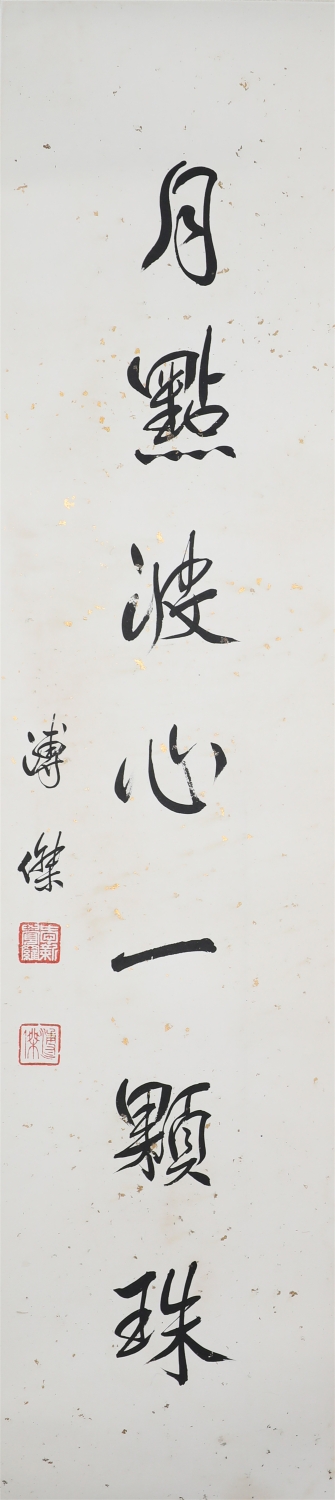 月點波心一顆珠
溥傑
溥傑